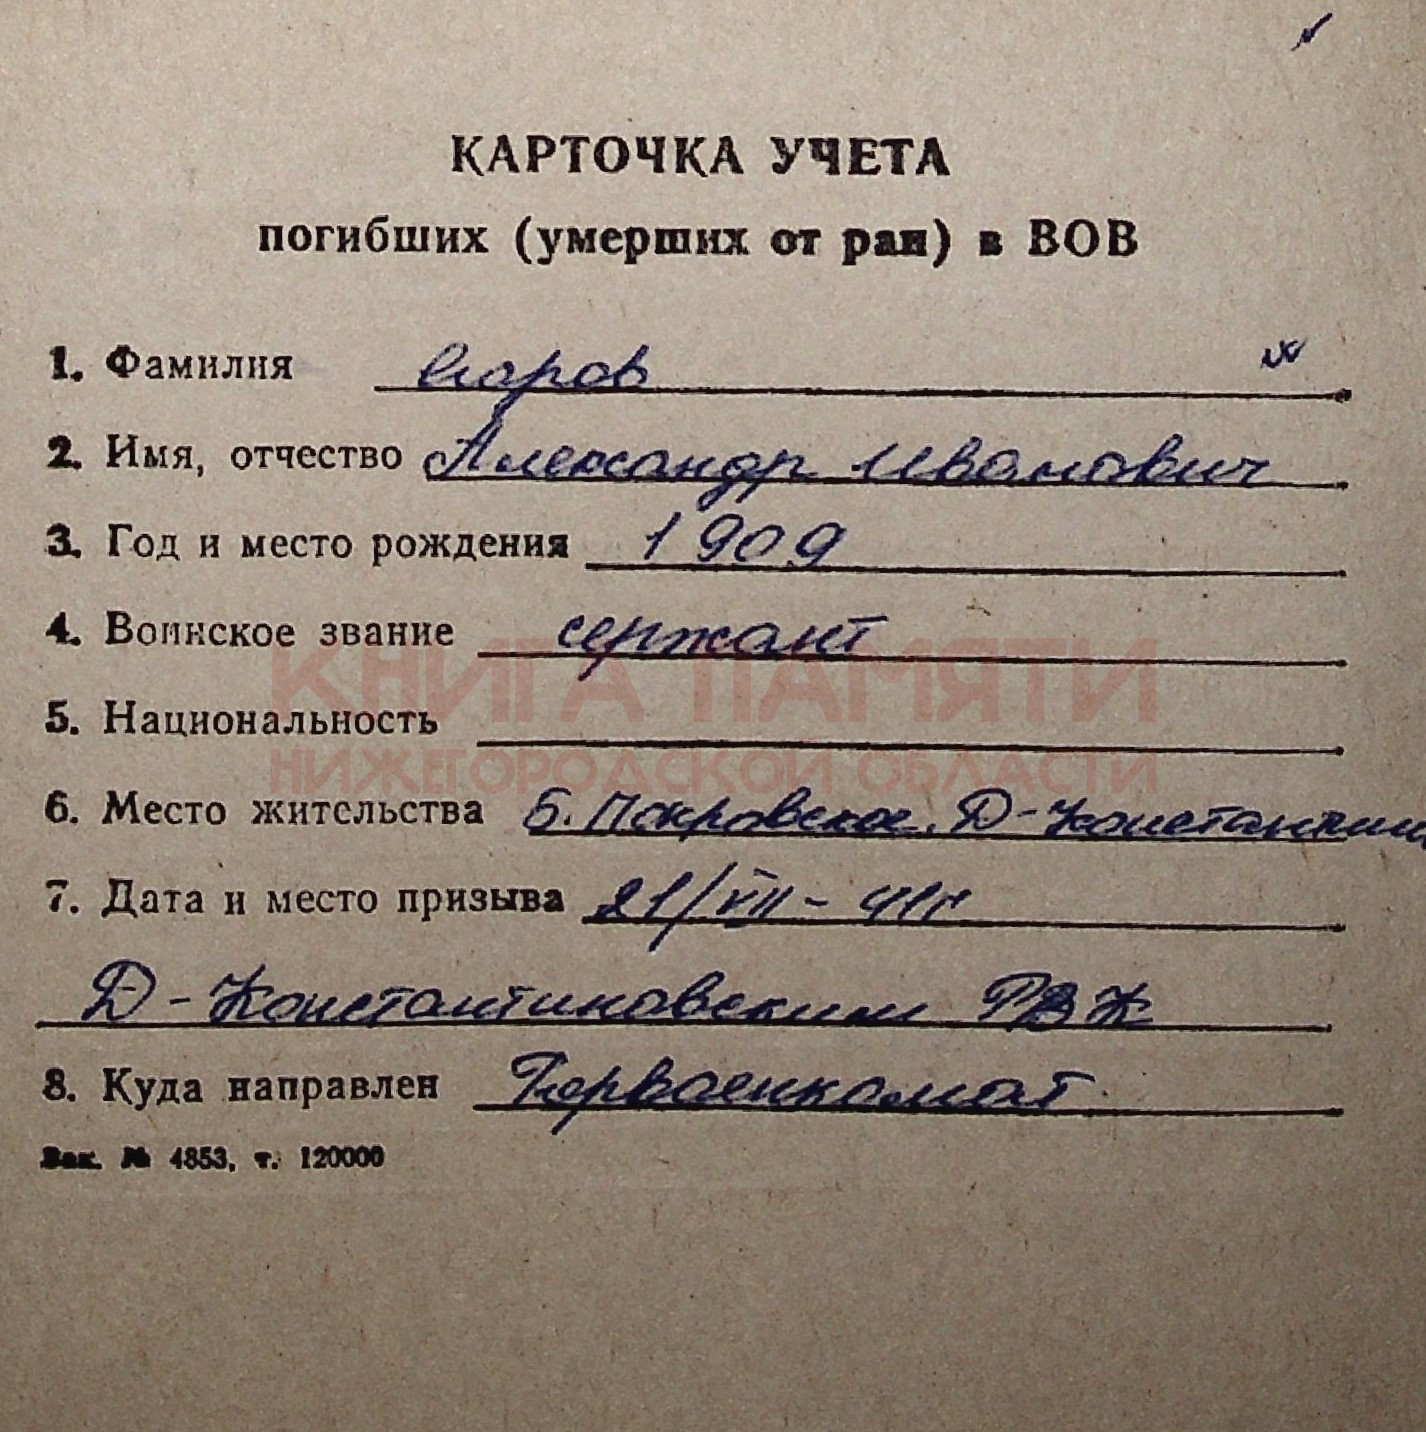 КАРТОЧКА УЧЕТА
погибших (умерших от ран) в ВОВ
1. Фамилия Егоров
2. Имя, отчество Александр Иванович
3. Год и место рождения 1909
4. Воинское звание сержант
КНИГА ПАМЯТИ
5. Национальность
НИЖЕГОРОДСКОЙ ОБЛАСТИ
6. Место жительства Б. Покровское. Д-Константин
7. Дата и место призыва 21/VII - 41г
Д-Константиновским РВК
8. Куда направлен Горвоенкомат
Зак. № 4853, т. 120000